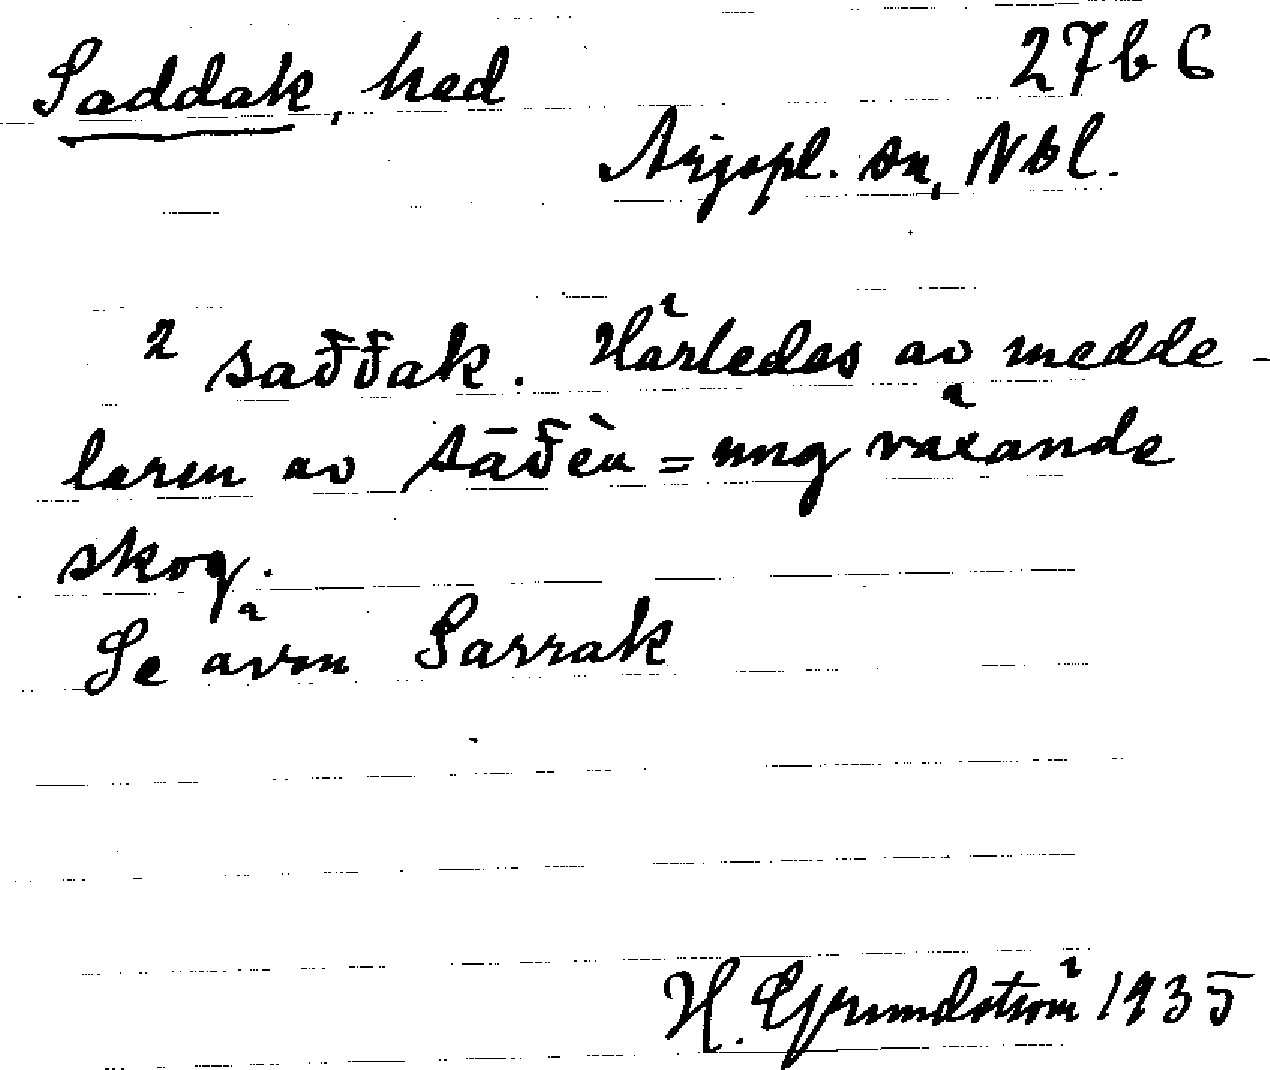 Saddak, hed 27 b 6
Arjepl. sn, Nbl.
2 saꟈꟈak. Härledes av medde-
laren av sāđèu = ung växande
skog.
Se även Sarrak
H. Grundström 1935